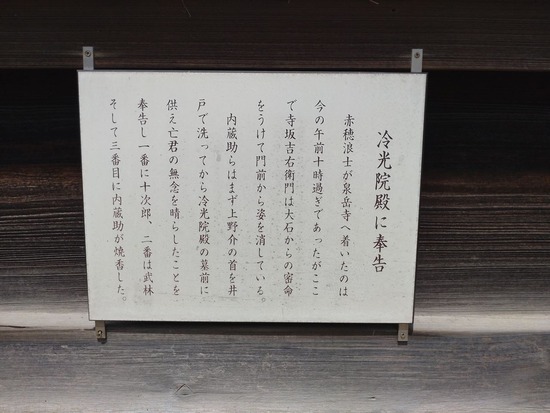 冷光院殿に奉告
赤穂浪士が泉岳寺へ着いたのは
今の午前十時過ぎであったがここ
で寺坂吉右衛門は大石からの密命
をうけて門前から姿を消している。
内蔵助らはまず上野介の首を井
戸で洗ってから冷光院殿の墓前に
供え亡君の無念を晴らしたことを
奉告し一番に十次郎、二番は武林
そして三番目に内蔵助が焼香した。